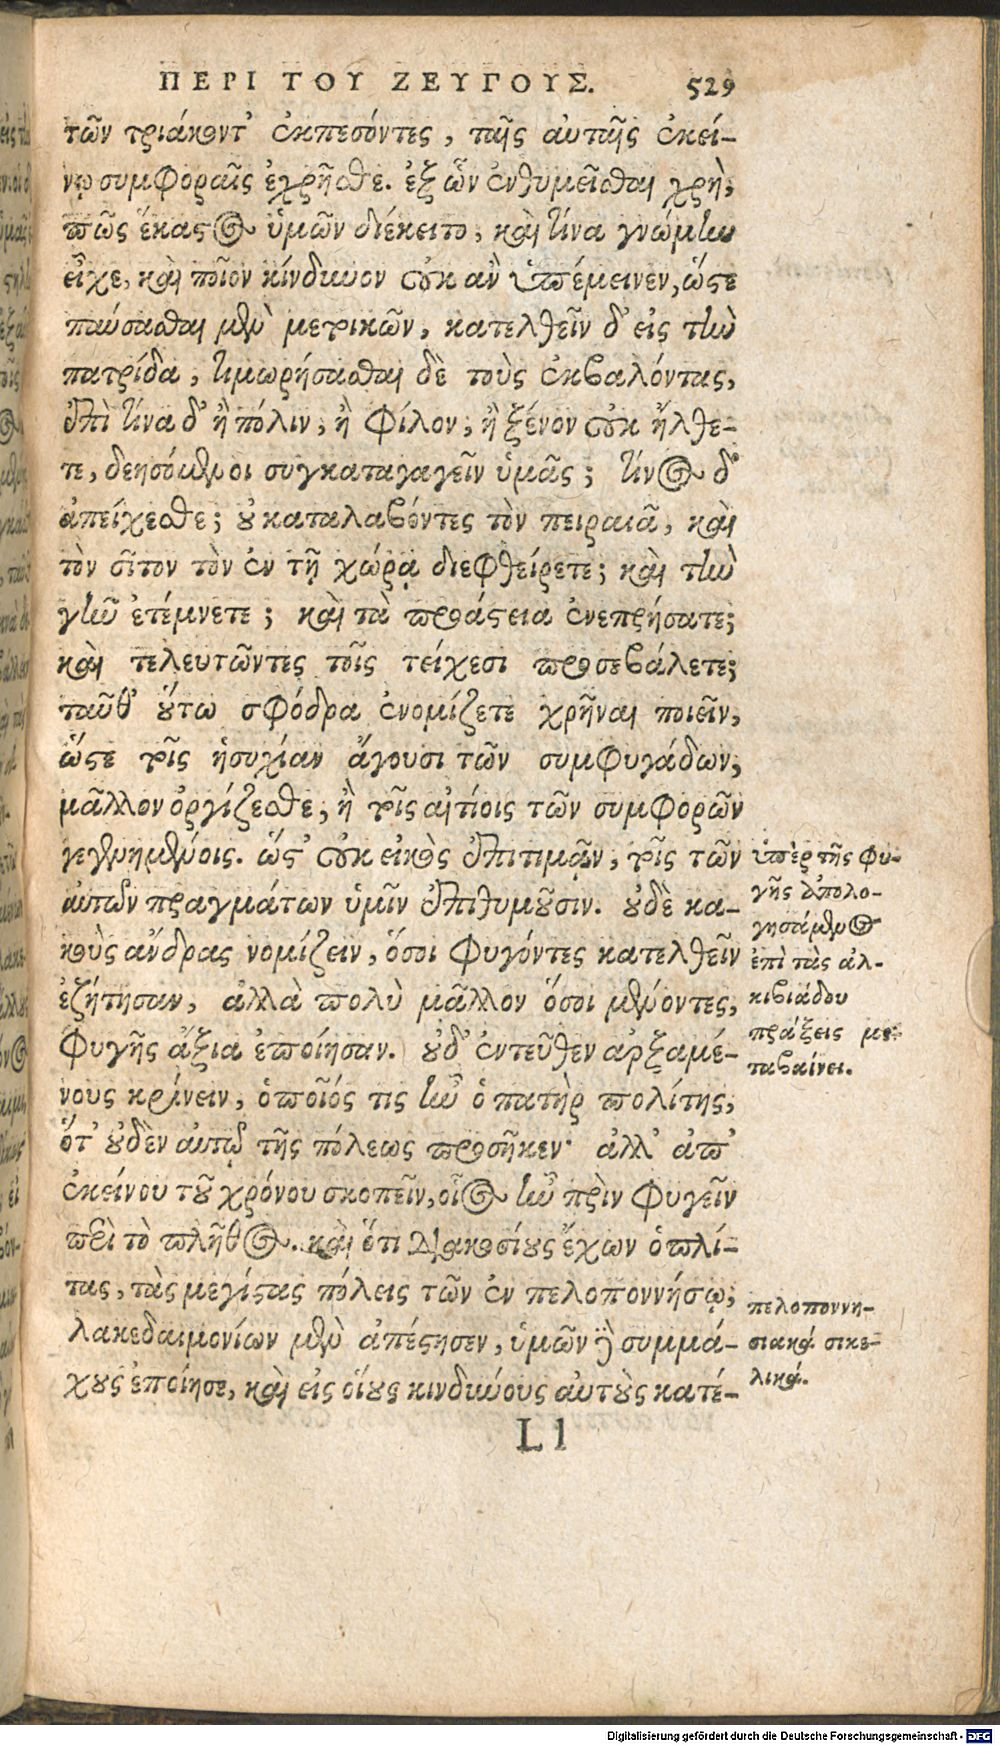 ΠΕΡΙ ΤΟΥ ΖΕΥΓΟΥΣ. 529
τῶν τριάκοντ' ἐκπεσόντες, ταῖς αὐταῖς ἐκεί-
νῳ συμφοραῖς ἐχρῆσθε. ἐξ ὧν ἐνθυμεῖσθαι χρὴ,
πῶς ἕκαστος ὑμῶν διέκειτο, καὶ τίνα γνώμην
εἶχε, καὶ ποῖον κίνδυνον οὐκ ἂν ὑπέμεινεν, ὥστε
παύσασθαι μὲν μετοικῶν, κατελθεῖν δ' εἰς τὴν
πατρίδα, τιμωρήσασθαι δὲ τοὺς ἐκβαλόντας,
ἐπὶ τίνα δ' ἢ πόλιν, ἢ φίλον, ἢ ξένον οὐκ ἤλθε-
τε, δεησόμενοι συγκαταγαγεῖν ὑμᾶς; τίνος δ'
ἀπείχεσθε; οὐ καταλαβόντες τὸν πειραιᾶ, καὶ
τὸν σῖτον τὸν ἐν τῇ χώρᾳ διεφθείρετε; καὶ τὴν
γῆν ἐτέμνετε; καὶ τὰ προάστεια ἐνεπρήσατε;
καὶ τελευτῶντες τοῖς τείχεσι προσεβάλετε;
ταῦθ' οὕτω σφόδρα ἐνομίζετε χρῆναι ποιεῖν,
ὥστε τοῖς ἡσυχίαν ἄγουσι τῶν συμφυγάδων,
μᾶλλον ὀργίζεσθε, ἢ τοῖς αἰτίοις τῶν συμφορῶν
γεγενημένοις. ὥστ' οὐκ εἰκὸς ἐπιτιμᾷν, τοῖς τῶν
αὐτῶν πραγμάτων ὑμῖν ἐπιθυμοῦσιν. οὐδὲ κα-
κοὺς ἄνδρας νομίζειν, ὅσοι φυγόντες κατελθεῖν
ἐζήτησαν, ἀλλὰ πολὺ μᾶλλον ὅσοι μένοντες,
φυγῆς ἄξια ἐποίησαν. οὐδ' ἐντεῦθεν ἀρξαμέ-
νους κρίνειν, ὁποῖός τις ἦν ὁ πατὴρ πολίτης,
ὅτ' οὐδὲν αὐτῷ τῆς πόλεως προσῆκεν· ἀλλ' ἀπ'
ἐκείνου τοῦ χρόνου σκοπεῖν, οἷος ἦν πρὶν φυγεῖν
περὶ τὸ πλῆθος. καὶ ὅτι διακοσίους ἔχων ὁπλί-
τας, τὰς μεγίστας πόλεις τῶν ἐν πελοποννήσῳ,
λακεδαιμονίων μὲν ἀπέστησεν, ὑμῶν δὲ συμμά-
χους ἐποίησε, καὶ εἰς οἵους κινδύνους αὐτοὺς κατέ-
Ll
ὑπὲρ τῆς φυ-
γῆς ἀπολο-
γησάμενος
ἐπὶ τὰς ἀλ-
κιβιάδου
πράξεις με-
ταβαίνει.
πελοποννη-
σιακά. σικε-
λικά.
Digitalisierung gefördert durch die Deutsche Forschungsgemeinschaft - DFG